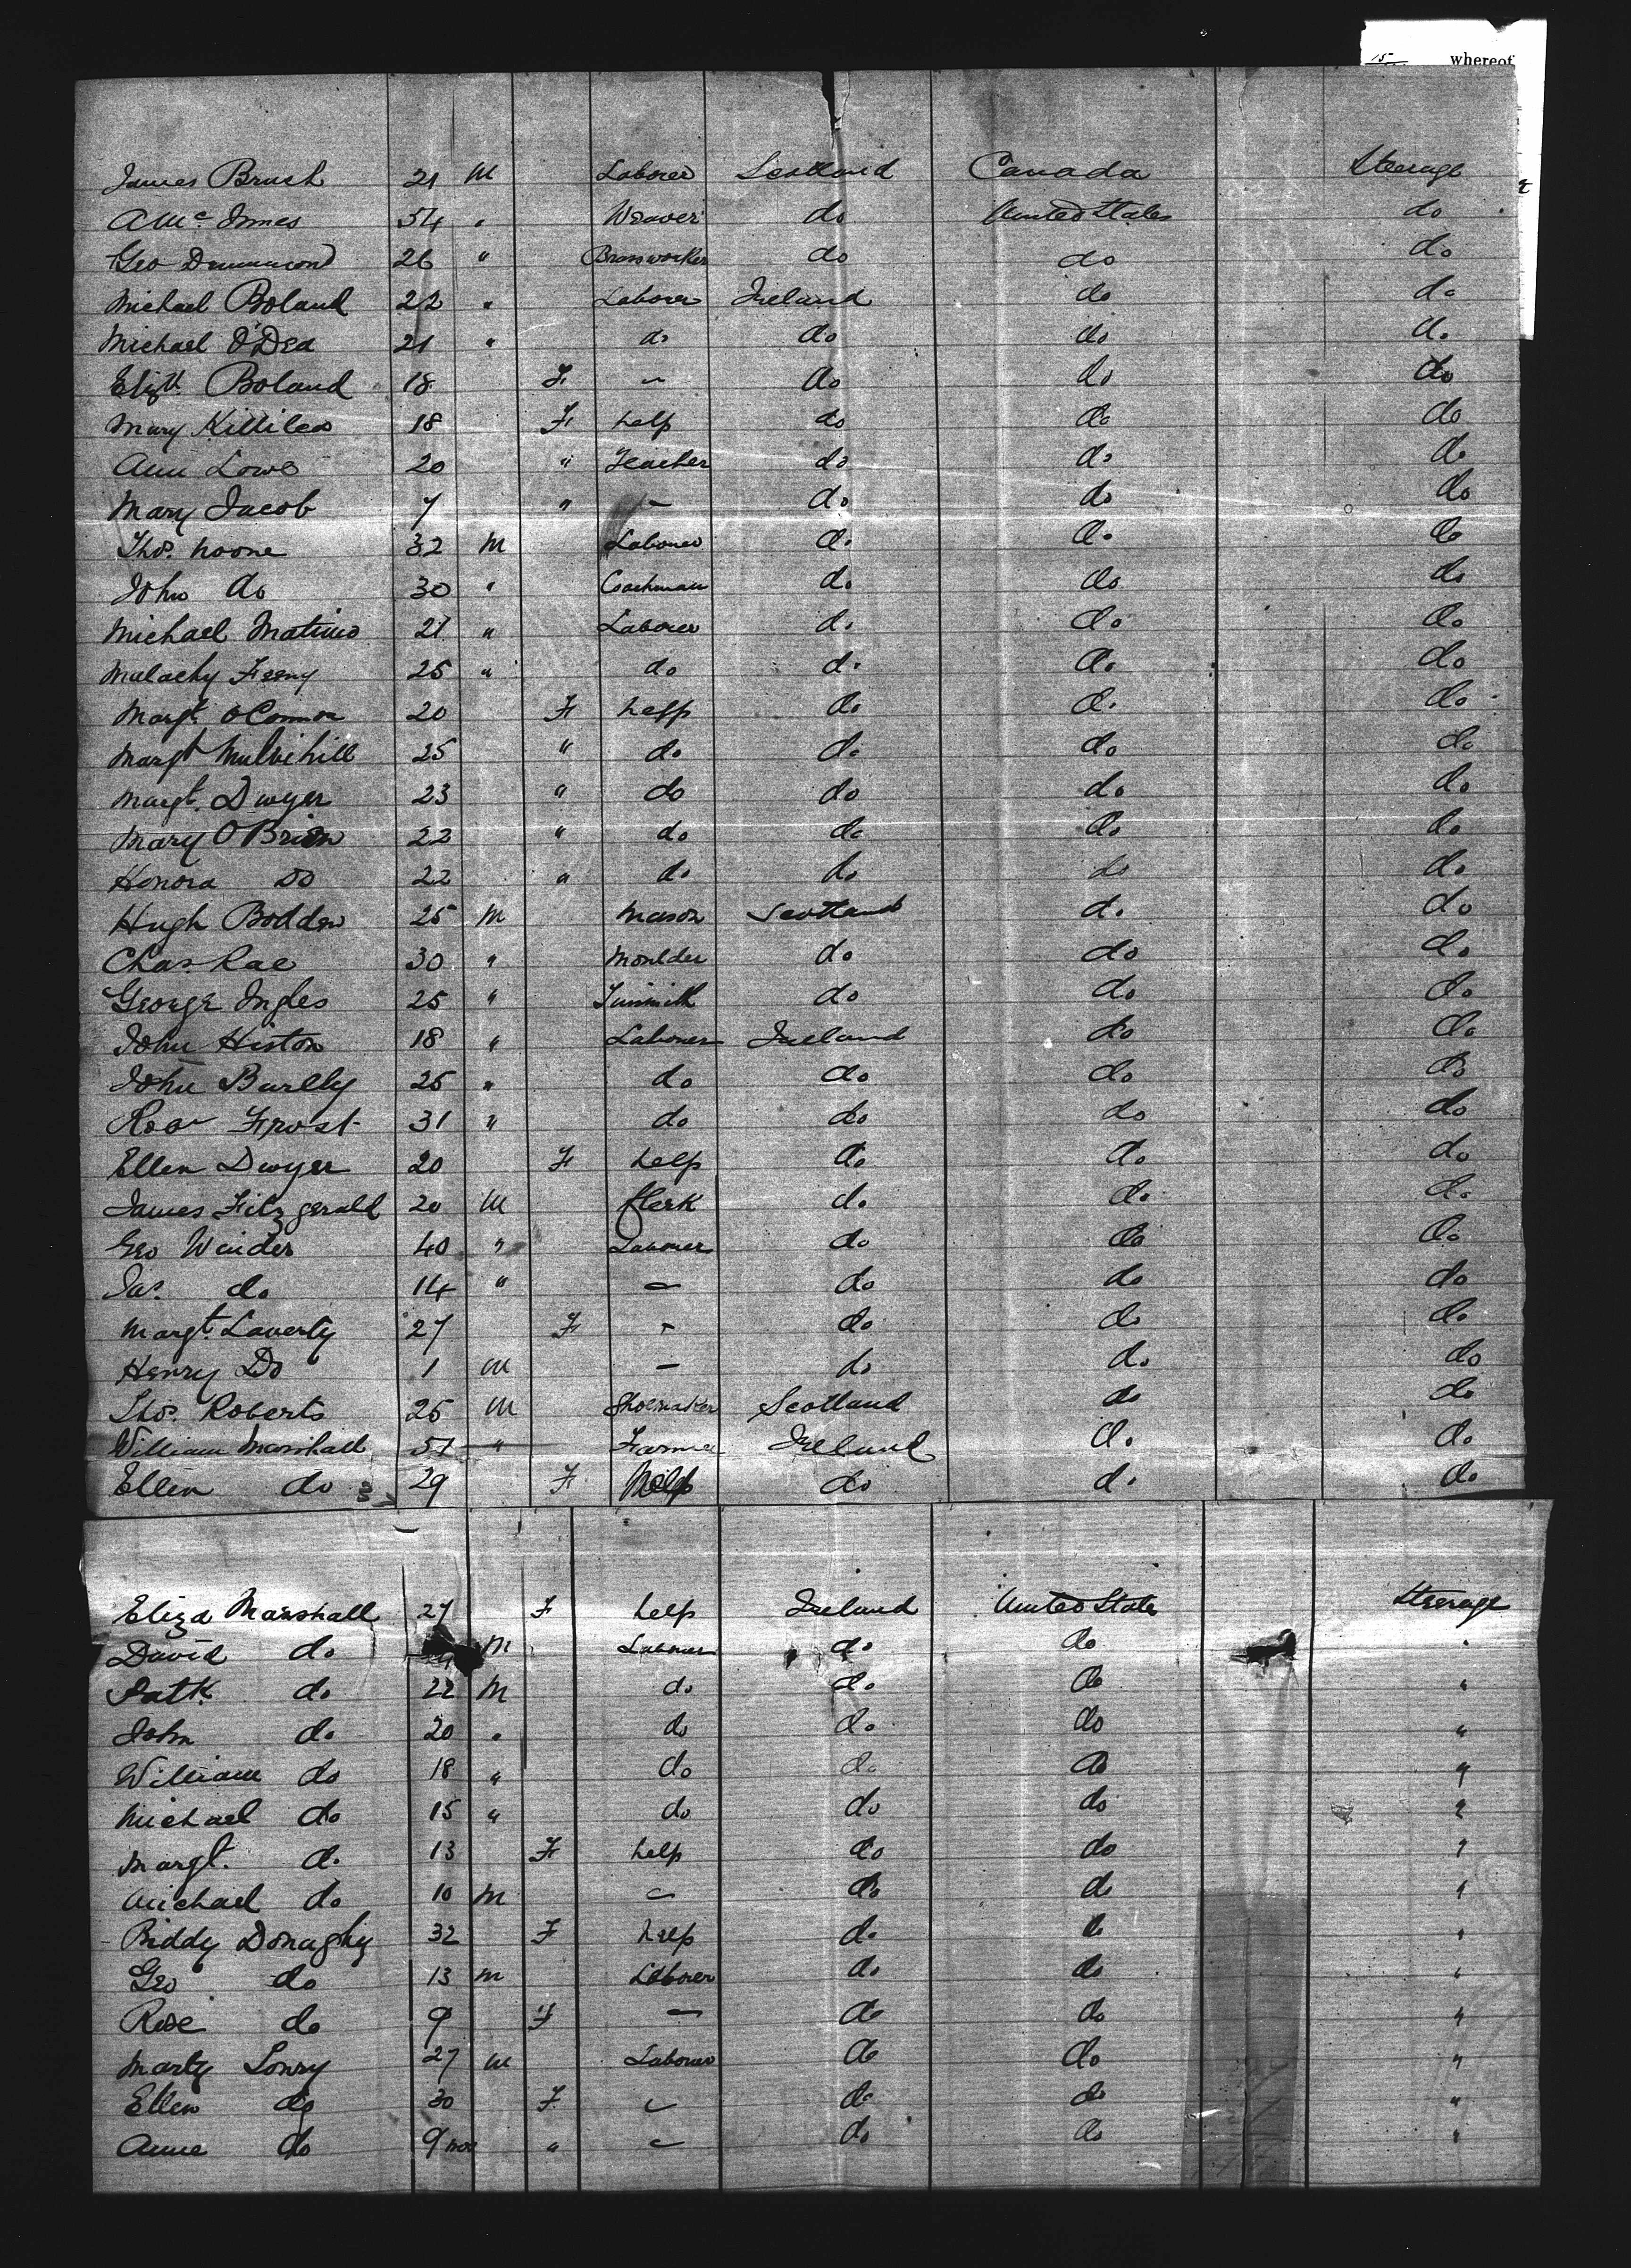 15 whereof
James Brush 21 M Laborer Scotland Canada Steerage
A McInnes 54 " Weaver do United States do
Geo Drummond 26 " Brassworker do do do
Michael Boland 22 " Laborer Ireland do do
Michael O'Dea 21 " do do do do
Elizth. Boland 18 F - do do do
Mary Killilea 18 F help do do do
Ann Lowe 20 " Teacher do do do
Mary Jacob 7 " - do do do
Thos. Noone 32 M Laborer do do do
John do 30 " Coachman do do do
Michael 21 " Laborer do do do
Malachy Feeny 25 " do do do do
Margt. O'Connor 20 F help do do do
Margt Mulvihill 25 " do do do do
Margt. Dwyer 23 " do do do do
Mary O'Brien 22 " do do do do
Honora Do 22 " do do do do
Hugh Bodden 25 M Mason Scotland do do
Chas Rae 30 " Moulder do do do
George Ingles 25 " Tinsmith do do do
John Histon 18 " Laborer Ireland do do
John 25 " do do do do
Frost 31 " do do do do
Ellen Dwyer 20 F help do do do
James Fitzgerald 20 M Clerk do do do
Geo Winder 40 " Laborer do do do
Jas. do 14 " - do do do
Margt. Laverty 27 F - do do do
Henry Do 1 M - do do do
Thos. Roberts 25 M Shoemaker Scotland do do
William Marshall 57 " Farmer Ireland do do
Ellen do 29 F Help do do do
Eliza Marshall 27 F help Ireland United States Steerage
David do M Laborer do do "
Patk do 22 M do do do "
John do 20 " do do do "
William do 18 " do do do "
Michael do 15 " do do do "
Margt. do 13 F help do do "
Michael do 10 M - do do "
Biddy Donaghy 32 F help do do "
Geo do 13 M Laborer do do "
Rose do 9 F - do do "
Marty Lowry 27 M Laborer do do "
Ellen do 30 F - do do "
Anne do 9 mos " - do do "